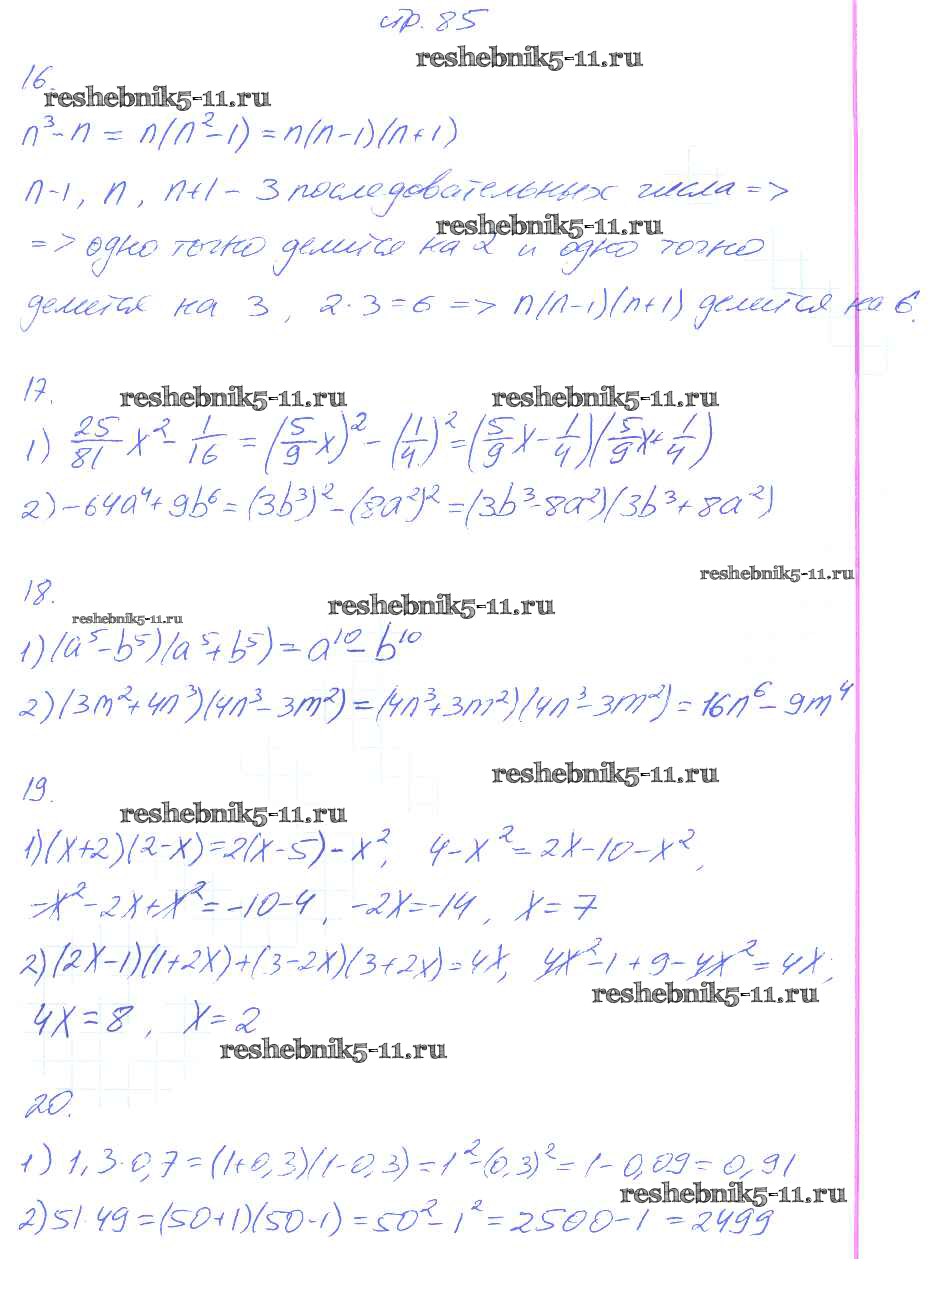 стр. 85
reshebnik5-11.ru
16.
reshebnik5-11.ru
n³-n = n(n²-1) = n(n-1)(n+1)
n-1, n, n+1 - 3 последовательных числа =>
reshebnik5-11.ru
=> одно точно делится на 2 и одно точно
делится на 3, 2·3=6 => n(n-1)(n+1) делится на 6.
17.
reshebnik5-11.ru reshebnik5-11.ru
1) 25/81 x² - 1/16 = (5/9 x)² - (1/4)² = (5/9 x - 1/4)(5/9 x + 1/4)
2) -64a⁴ + 9b⁶ = (3b³)² - (8a²)² = (3b³-8a²)(3b³+8a²)
reshebnik5-11.ru
18.
reshebnik5-11.ru
reshebnik5-11.ru
1) (a⁵-b⁵)(a⁵+b⁵) = a¹⁰-b¹⁰
2) (3m²+4n³)(4n³-3m²) = (4n³+3m²)(4n³-3m²) = 16n⁶-9m⁴
reshebnik5-11.ru
19.
reshebnik5-11.ru
1) (x+2)(2-x)=2(x-5)-x², 4-x²=2x-10-x²,
-x²-2x+x²=-10-4, -2x=-14, x=7
2) (2x-1)(1+2x)+(3-2x)(3+2x)=4x, 4x²-1+9-4x²=4x;
reshebnik5-11.ru
4x=8, x=2
reshebnik5-11.ru
20.
1) 1,3·0,7=(1+0,3)(1-0,3)=1²-(0,3)²=1-0,09=0,91
reshebnik5-11.ru
2) 51·49=(50+1)(50-1)=50²-1²=2500-1=2499